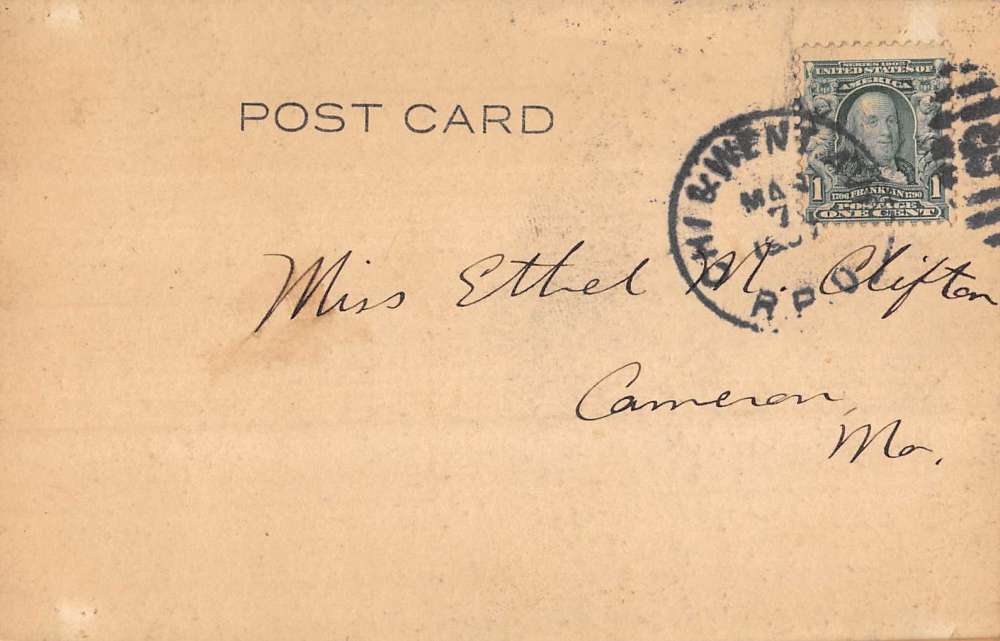 POST CARD
SERIES 1902
UNITED STATES OF
AMERICA
1 1706 FRANKLIN 1790 1
POSTAGE
ONE CENT
CHI & WEN
7
R.P.O.
Miss Ethel M. Clifton
Cameron,
Mo.